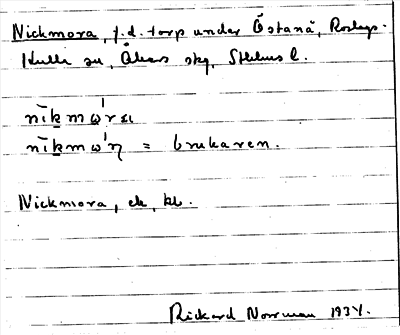 Nickmora, f.d. torp under Östanå, Roslags-
Kulla sn, Åkers skg, Sthlms l.
nīkmω'rα
nīkmω'η = brukaren.
Nickmora, ek, kb.
Rickard Norrman 1934.